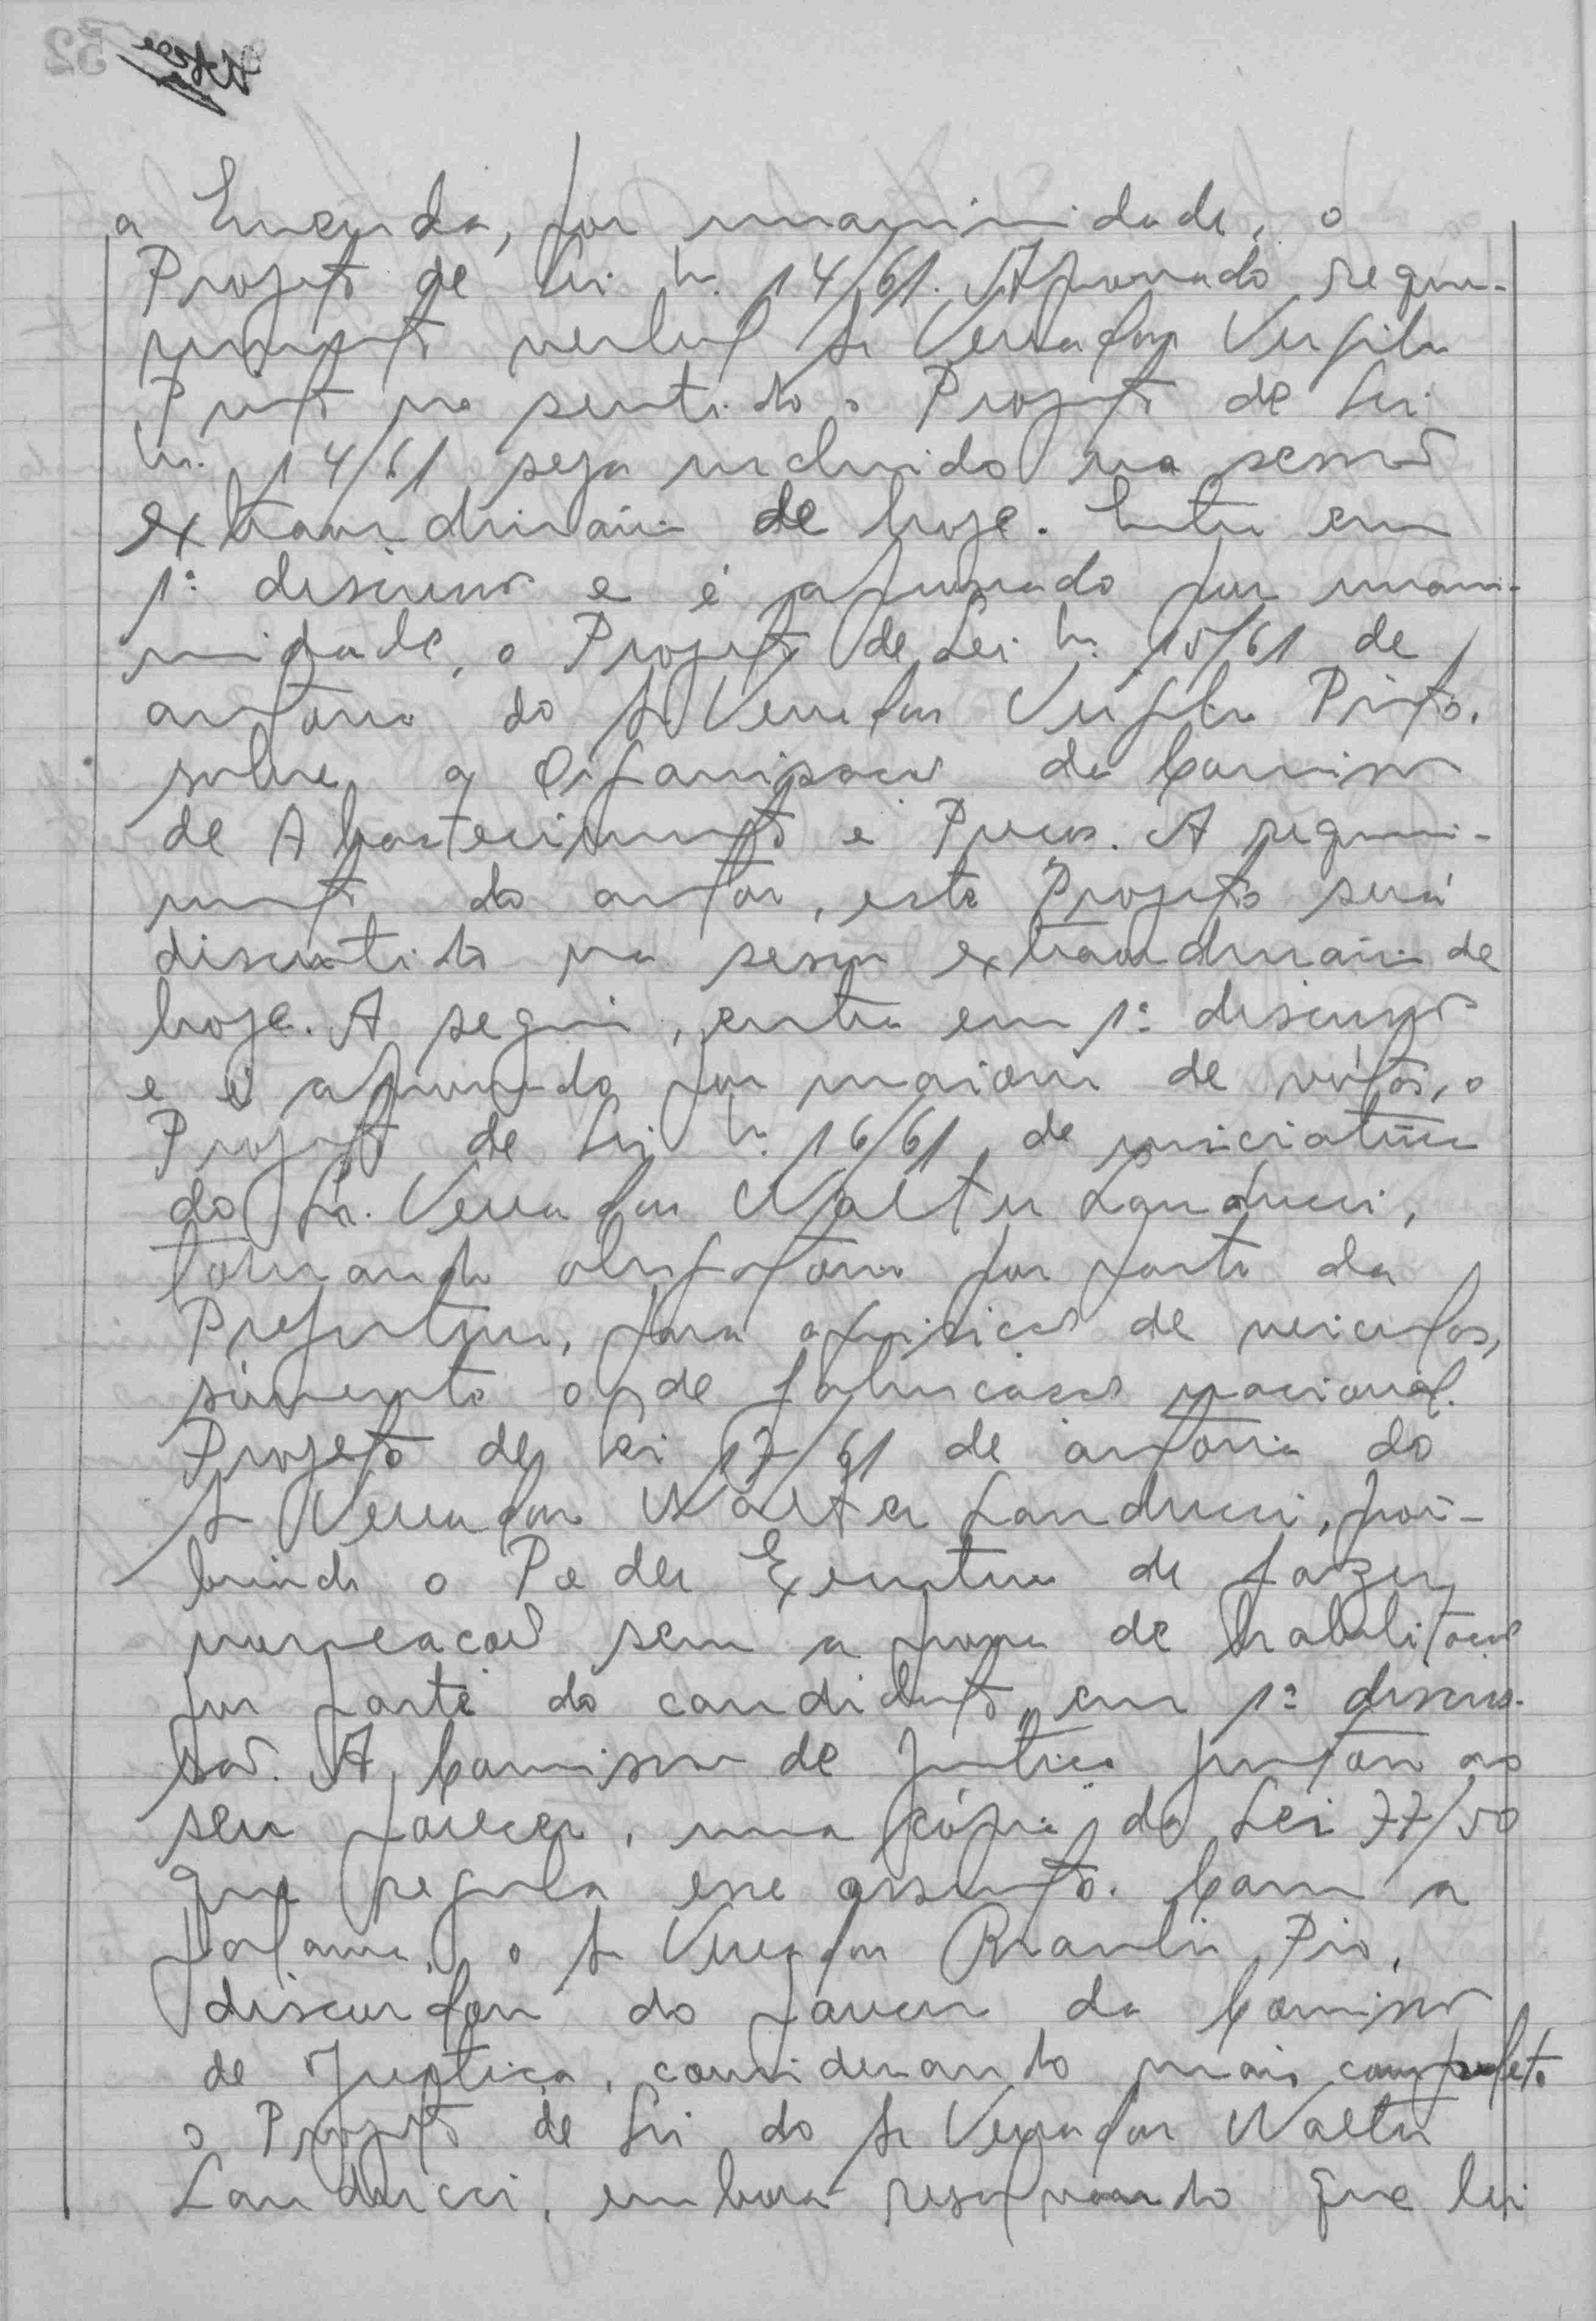 a Emenda, por unanimidade, o
Projeto de Lei n. 14/61. Aprovado reque-
rimento verbal Sr Vereador Vergilio
Pinto no sentido o Projeto de Lei
n. 14/61 seja incluido na sessão
extraordinária de hoje. Entra em
1ª discussão e é aprovado por unani-
midade, o Projeto de Lei n. 15/61 de
autoria do Sr Vereador Vergilio Pinto,
sobre a Organisacão da Comissão
de Abastecimento e Preços. A requeri-
mento do autor, este Projeto será
discutido na sessão extraordinária de
hoje. A seguir, entra em 1ª discussão
e é aprovado por maioria de vótos, o
Projeto de Lei n. 16/61, de iniciativa
do Sr. Vereador Walter Landucci,
tornando obrigatório por parte da
Prefeitura, para aquisição de veiculos,
sómente os de fabricacão nacional.
Projeto de Lei 17/61 de autoria do
Sr Vereador Walter Landucci, proi-
bindo o Poder Executivo de fazer
nomeacão sem a prova de habilitacão
por parte do candidato, em 1ª discus-
são. A Comissão de Justiça juntou ao
seu parecer, uma cópia da Lei 77/50
que regula esse assunto. Com a
palavra, o Sr Vereador Braulio Pio,
discordou do parecer da Comissão
de Justiça, considerando mais completo
o Projeto de Lei do Sr Vereador Walter
Landucci, embora resalvando que lei